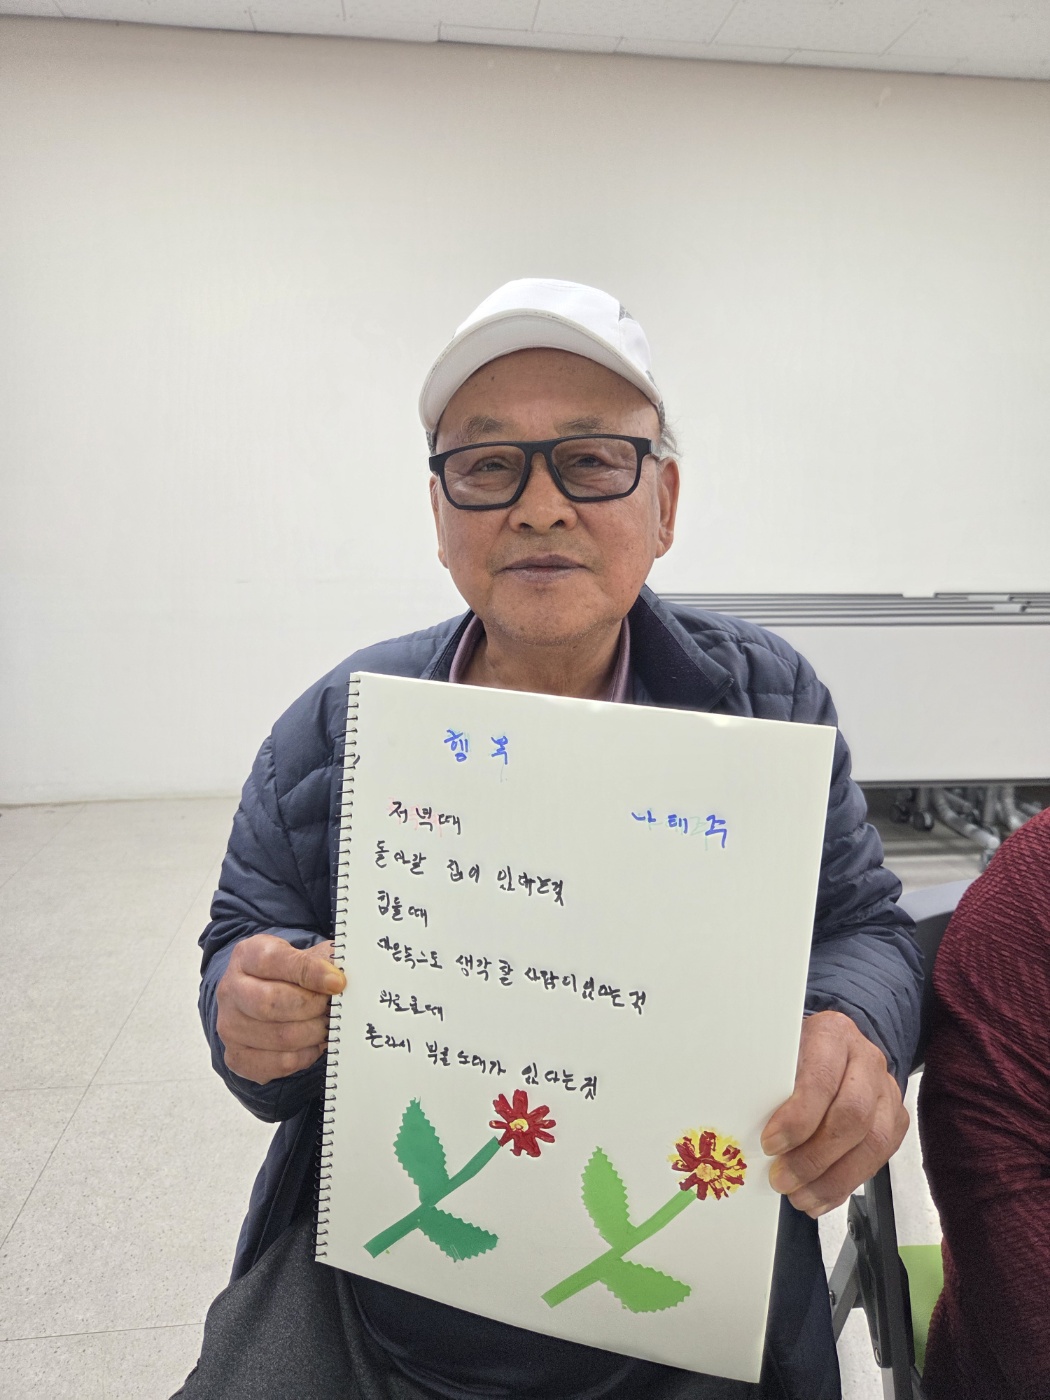 행복
나태주
저녁때
돌아갈 집이 있다는것
힘들때
마음속으로 생각 할 사람이 있다는 것
외로울때
혼라서 부를 노래가 있다는것